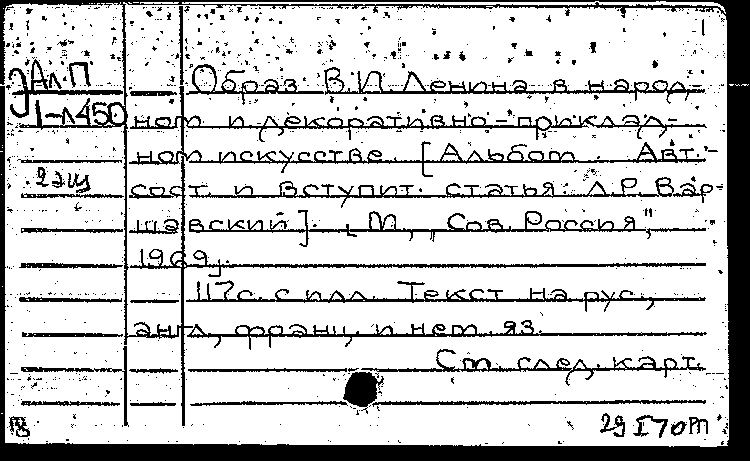 Ал.П
1-л450
2 экз
Образ В.И. Ленина в народ-
ном и декоративно-приклад-
ном искусстве. [Альбом. Авт.-
сост. и вступит. статья: Л.Р. Вар-
шавский]. [М., „Сов. Россия",
1969].
117с. с илл. Текст на рус.,
англ., франц. и нем. яз.
См. след. карт.
29 I 70